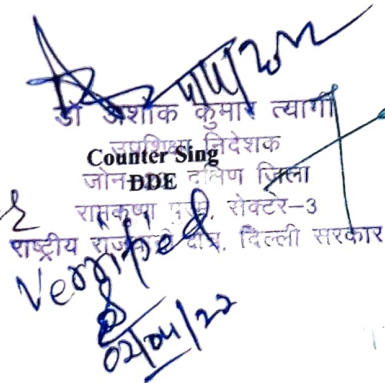 डॉ अशोक कुमार त्यागी
उपशिक्षा निदेशक
Counter Sing
DDE
जोन दक्षिण जिला
रामकृष्णा पुरम, सेक्टर-3
राष्ट्रीय राजधानी क्षेत्र, दिल्ली सरकार
Verified
02/04/22